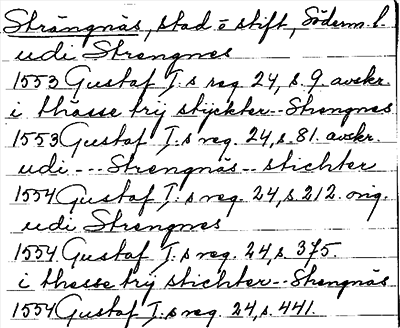 Strängnäs, stad o stift, Söderm. l.
udi Strengnes
1553 Gustaf I.s reg. 24, s. 9. avskr.
i thässe try styckter -- Strengnes
1553 Gustaf I.s reg. 24, s. 81. avskr.
udi --- Strengnäs -- stichter
1554 Gustaf I.s reg. 24, s. 212. orig.
udi Strengnes
1554 Gustaf I.s reg. 24, s. 375.
i thesse try stichter -- Strengnäs
1554 Gustaf I.s reg. 24, s. 441.